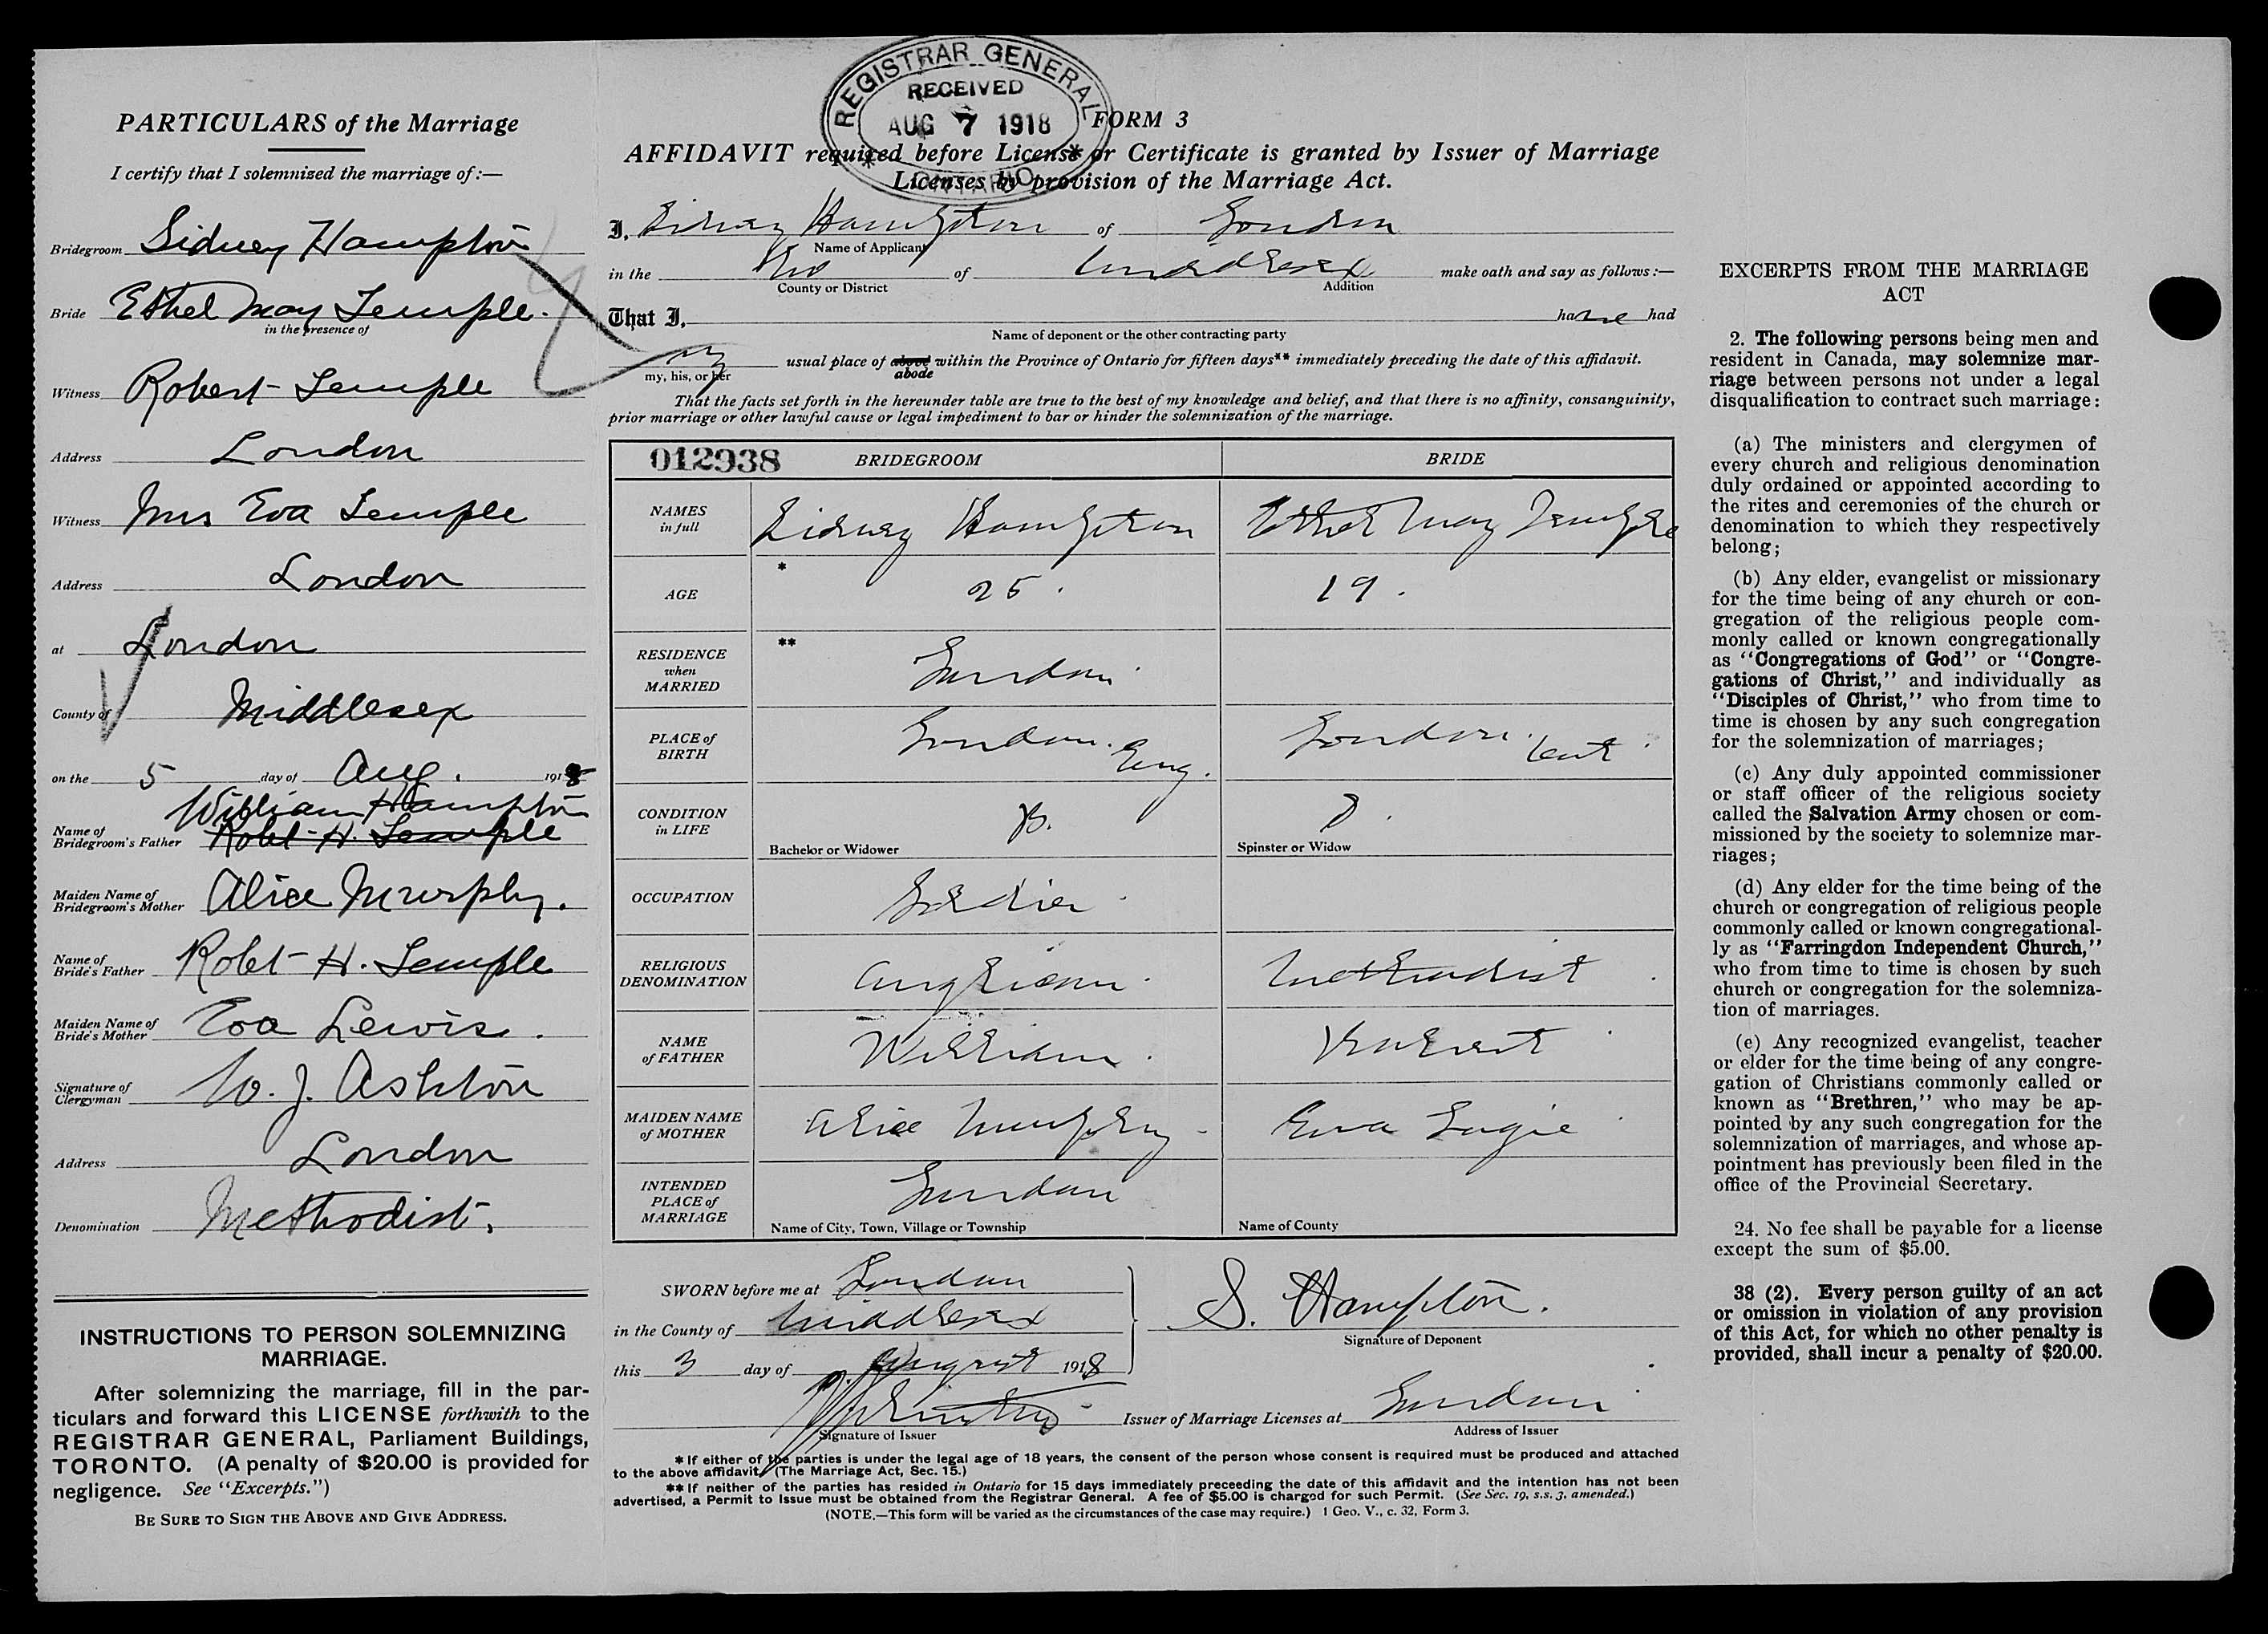 PARTICULARS of the Marriage
I certify that I solemnized the marriage of:—
Bridegroom Sidney Hampton
Bride Ethel May Temple.
in the presence of
Witness Robert Temple
Address London
Witness Mrs Eva Temple
Address London
at London
County of Middlesex
on the 5 day of Aug. 1918
William Hampton
Name of Bridegroom's Father Robt H. Temple
Maiden Name of Bridegroom's Mother Alice Murphy.
Name of Bride's Father Robt H. Temple
Maiden Name of Bride's Mother Eva Lewis.
Signature of Clergyman W. J. Ashton
Address London
Denomination Methodist.
INSTRUCTIONS TO PERSON SOLEMNIZING
MARRIAGE.
After solemnizing the marriage, fill in the par-
ticulars and forward this LICENSE forthwith to the
REGISTRAR GENERAL, Parliament Buildings,
TORONTO. (A penalty of $20.00 is provided for
negligence. See "Excerpts.")
BE SURE TO SIGN THE ABOVE AND GIVE ADDRESS.
REGISTRAR GENERAL
RECEIVED
AUG 7 1918
ONTARIO
FORM 3
AFFIDAVIT required before License or Certificate is granted by Issuer of Marriage
Licenses by provision of the Marriage Act.
I, Sidney Hampton of London
Name of Applicant
in the of Middlesex make oath and say as follows:—
County or District Addition
That I, have had
Name of deponent or the other contracting party
my usual place of above within the Province of Ontario for fifteen days** immediately preceding the date of this affidavit.
my, his, or her abode
That the facts set forth in the hereunder table are true to the best of my knowledge and belief, and that there is no affinity, consanguinity,
prior marriage or other lawful cause or legal impediment to bar or hinder the solemnization of the marriage.
012938 BRIDEGROOM BRIDE
NAMES in full Sidney Hampton Ethel May Temple
AGE * 25. 19.
RESIDENCE when MARRIED ** London
PLACE of BIRTH London. Eng. London. Ont
CONDITION in LIFE B. S.
Bachelor or Widower Spinster or Widow
OCCUPATION Soldier
RELIGIOUS DENOMINATION Anglican Methodist
NAME of FATHER William Robert
MAIDEN NAME of MOTHER Alice Murphy Eva
INTENDED PLACE of MARRIAGE London
Name of City, Town, Village or Township Name of County
SWORN before me at London
in the County of Middlesex
S. Hampton.
Signature of Deponent
this 3 day of August 1918
Issuer of Marriage Licenses at London
Signature of Issuer Address of Issuer
* If either of the parties is under the legal age of 18 years, the consent of the person whose consent is required must be produced and attached
to the above affidavit. (The Marriage Act, Sec. 15.)
** If neither of the parties has resided in Ontario for 15 days immediately preceeding the date of this affidavit and the intention has not been
advertised, a Permit to Issue must be obtained from the Registrar General. A fee of $5.00 is charged for such Permit. (See Sec. 19, s.s. 3, amended.)
(NOTE.—This form will be varied as the circumstances of the case may require.) 1 Geo. V., c. 32, Form 3.
EXCERPTS FROM THE MARRIAGE
ACT
2. The following persons being men and
resident in Canada, may solemnize mar-
riage between persons not under a legal
disqualification to contract such marriage:
(a) The ministers and clergymen of
every church and religious denomination
duly ordained or appointed according to
the rites and ceremonies of the church or
denomination to which they respectively
belong;
(b) Any elder, evangelist or missionary
for the time being of any church or con-
gregation of the religious people com-
monly called or known congregationally
as "Congregations of God" or "Congre-
gations of Christ," and individually as
"Disciples of Christ," who from time to
time is chosen by any such congregation
for the solemnization of marriages;
(c) Any duly appointed commissioner
or staff officer of the religious society
called the Salvation Army chosen or com-
missioned by the society to solemnize mar-
riages;
(d) Any elder for the time being of the
church or congregation of religious people
commonly called or known congregational-
ly as "Farringdon Independent Church,"
who from time to time is chosen by such
church or congregation for the solemniza-
tion of marriages.
(e) Any recognized evangelist, teacher
or elder for the time being of any congre-
gation of Christians commonly called or
known as "Brethren," who may be ap-
pointed by any such congregation for the
solemnization of marriages, and whose ap-
pointment has previously been filed in the
office of the Provincial Secretary.
24. No fee shall be payable for a license
except the sum of $5.00.
38 (2). Every person guilty of an act
or omission in violation of any provision
of this Act, for which no other penalty is
provided, shall incur a penalty of $20.00.